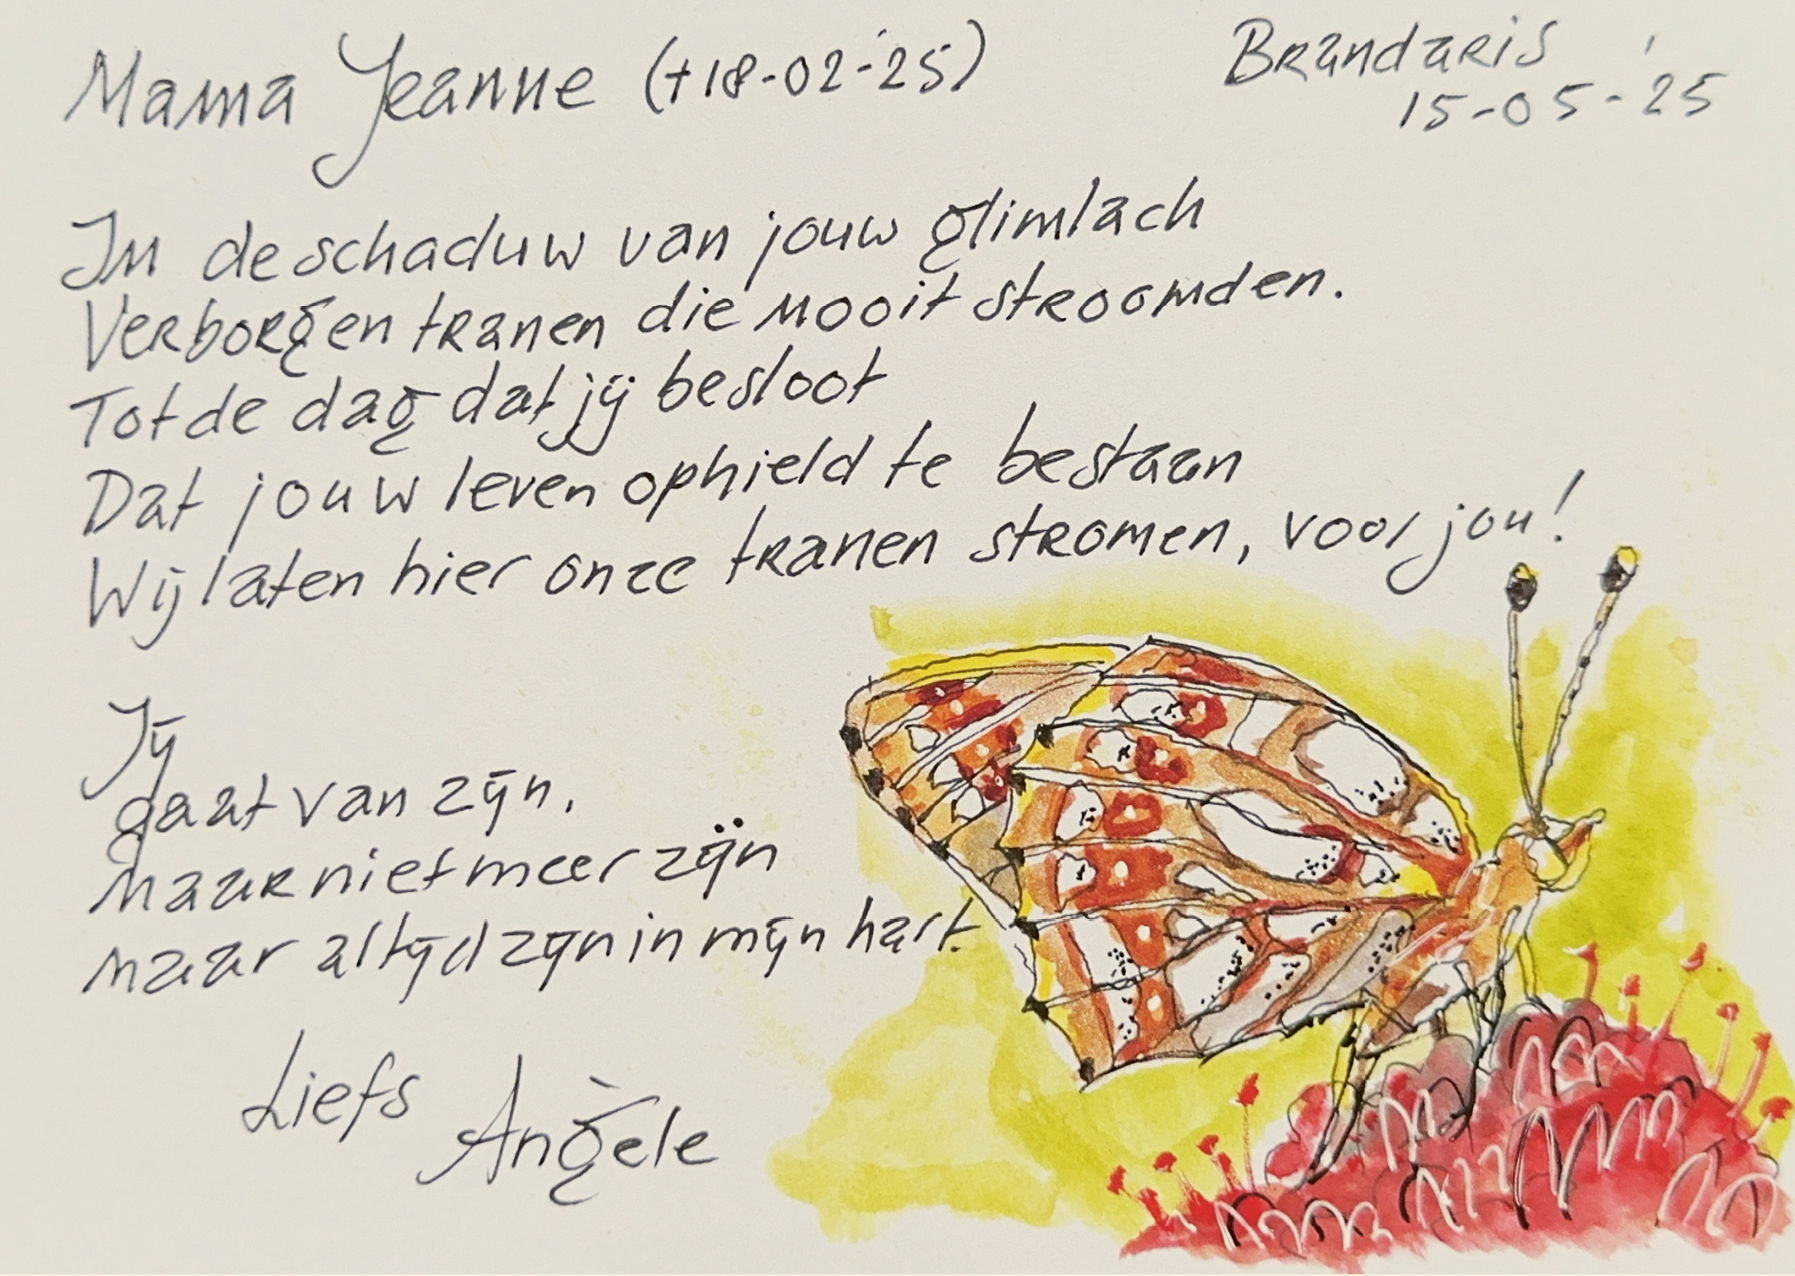 Mama Jeanne (†18-02-'25)
Brandaris
15-05-'25
In de schaduw van jouw glimlach
Verborgen tranen die nooit stroomden.
Tot de dag dat jij besloot
Dat jouw leven ophield te bestaan
Wij laten hier onze tranen stromen, voor jou!
Jij
gaat van zijn,
naar niet meer zijn
naar altijd zijn in mijn hart.
Liefs
Angèle